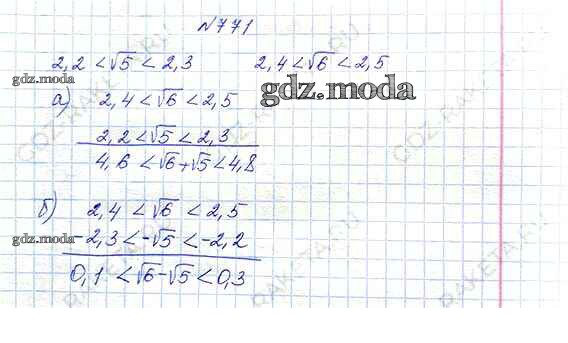 №771
2,2 < √5 < 2,3    2,4 < √6 < 2,5
gdz.moda
а) 2,4 < √6 < 2,5
gdz.moda
2,2 < √5 < 2,3
4,6 < √6 + √5 < 4,8
б) 2,4 < √6 < 2,5
gdz.moda
-2,3 < -√5 < -2,2
0,1 < √6 - √5 < 0,3
GDZ-RAKETA.RU
GDZ-RAKETA.RU